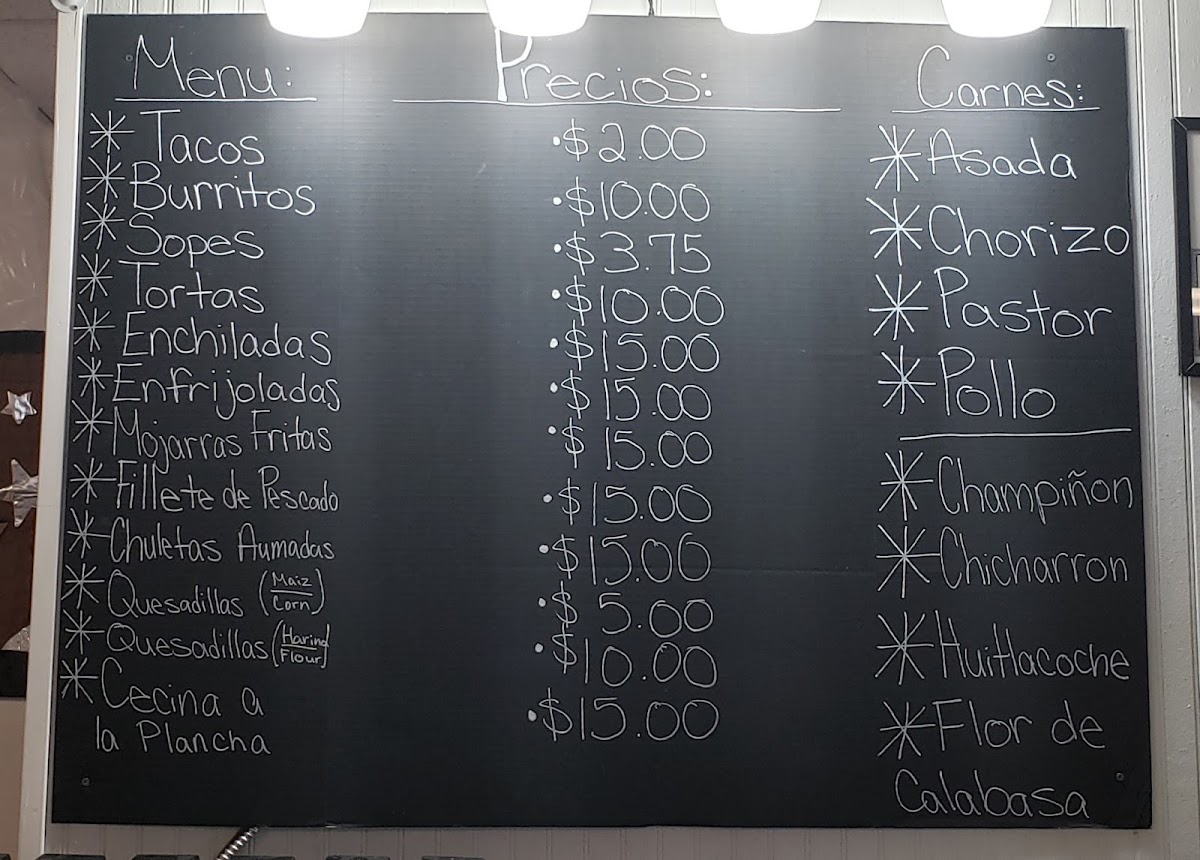 Menu:
* Tacos
* Burritos
* Sopes
* Tortas
* Enchiladas
* Enfrijoladas
* Mojarras Fritas
* Fillete de Pescado
* Chuletas Aumadas
* Quesadillas (Maiz/Corn)
* Quesadillas (Harina/Flour)
* Cecina a
la Plancha
Precios:
• $2.00
• $10.00
• $3.75
• $10.00
• $15.00
• $15.00
• $15.00
• $15.00
• $15.00
• $5.00
• $10.00
• $15.00
Carnes:
* Asada
* Chorizo
* Pastor
* Pollo
* Champiñon
* Chicharron
* Huitlacoche
* Flor de
Calabasa